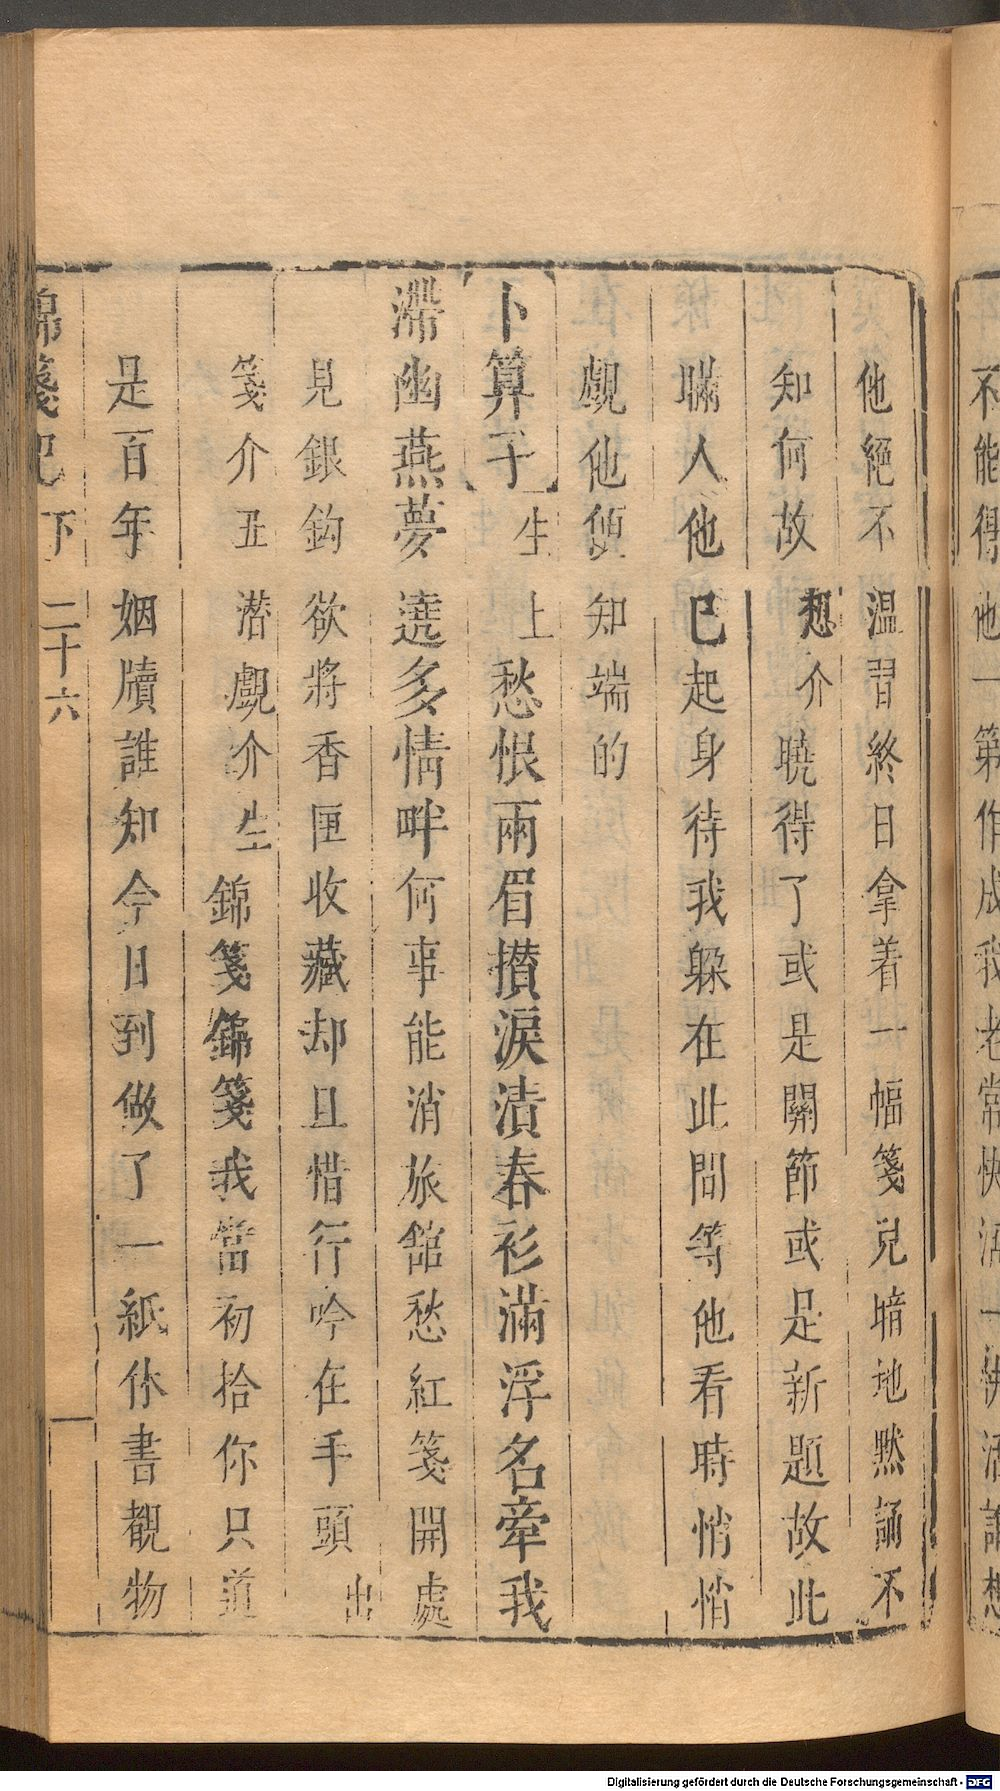 不能得他一第作成我老常快活一快活
他絕不溫習終日拿着一幅箋兒暗地默誦不
知何故想介曉得了或是關節或是新題故此
瞞人他已起身待我躱在此間等他看時悄悄
覷他便知端的
卜算子生上愁恨兩眉攅淚漬春衫滿浮名牽我
滯幽燕夢遶多情畔何事能消旅舘愁紅箋開處
見銀鈎欲將香匣收藏却且惜行吟在手頭出
箋介丑潜覷介生錦箋錦箋我當初拾你只道
是百年姻牘誰知今日到做了一紙休書覩物
錦箋記下 二十六
Digitalisierung gefördert durch die Deutsche Forschungsgemeinschaft - DFG